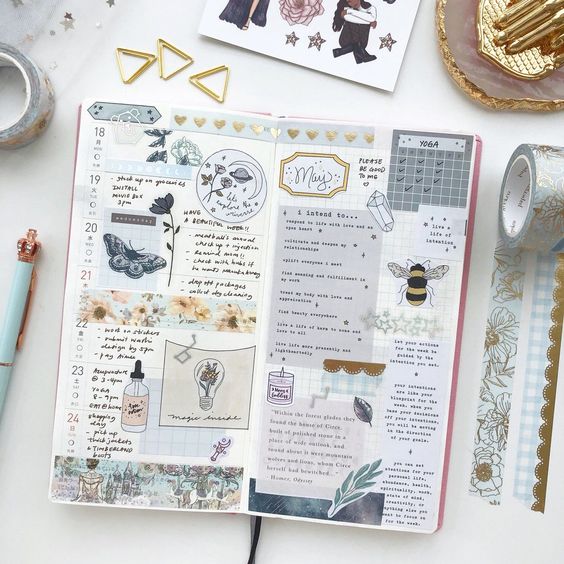 18
月
- stock up on groceries
INSTALL
MOVIE BOX
3PM
19
火
let's
explore the
universe
20
水
wednesday
HAVE
A
BEAUTIFUL WEEK!!
- meatball's annual
check up + injection
- remind mom!!
- check with hubs if
he wants manuka honey
21
木
- drop off packages
- collect dry cleaning
22
金
- work on stickers
- submit washi
design by 5pm
23
土
Acupuncture
@ 3-4PM
YOGA
8-9PM
EAT @ HOME
24
日
shopping
day
- pick up
- thick jackets
+ TIMBERLAND
BOOTS
magic inside
May
PLEASE
BE GOOD
TO ME
YOGA
i intend to...
respond to life with love and an
open heart
cultivate and deepen my
relationships
uplift everyone i meet
find meaning and fulfillment in
my work
treat my body with love and
appreciation
find beauty everywhere
live a life of harm to none and
to all
live life more presently and
lightheartedly
live a
life of
intention
Let your actions
for the week be
guided by the
intention you set.
your intentions
are like your
blueprint for the
week. when you
base your
decisions off
your intentions,
you will be
moving in the
direction of
your goals.
you can set
intentions for
your personal
life, abundance,
health,
spirituality, work,
state of mind,
creativity, or
whatever you want
to focus on
for the week.
"Within the forest glades they
found the house of Circe,
built of polished stone in a
place of wide outlook, and
round about it were mountain
wolves and lions, whom Circe
herself had bewitched..."
- Homer, Odyssey